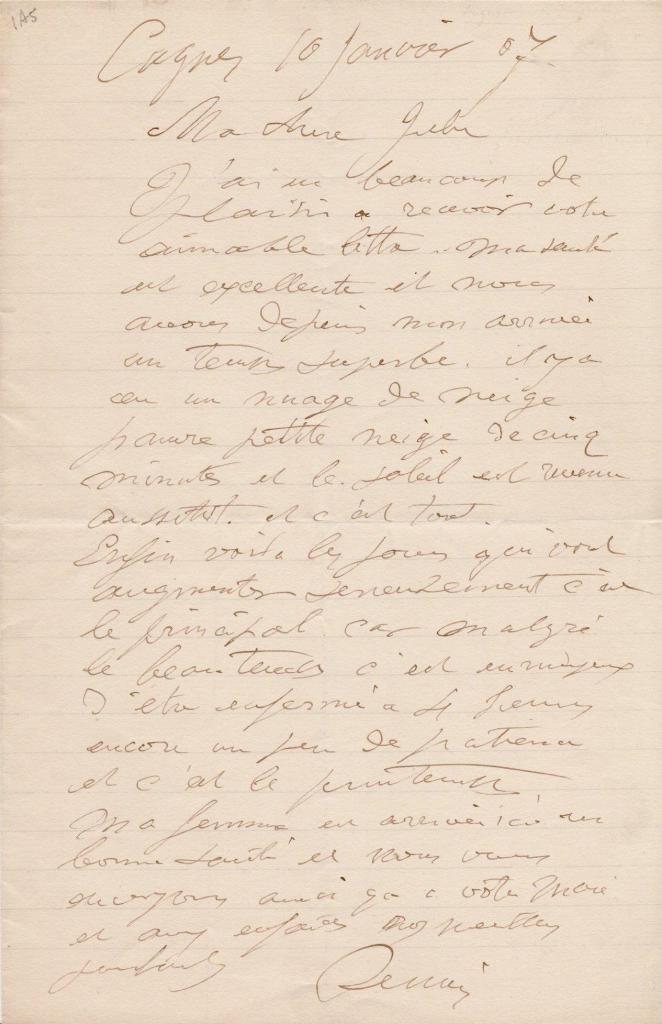 1A5
Cagnes 10 Janvier 07.
Ma chere Julie
J'ai eu beaucoup de
plaisir a recevoir votre
aimable lettre. ma santé
est excellente et nous
avons depuis mon arrivée
un temps superbe. il y a
eu un nuage de neige
pauvre petite neige de cinq
minutes et le soleil est revenu
aussitot. et c'est tout.
Enfin voila les jours qui vont
augmenter serieuzement c'est
le principal car malgré
le beau temps c'est ennuyeux
d'etre enfermé a 4 heures
encore un peu de patience
et c'est le printemps
Ma femme est arrivée ici en
bonne santé et nous vous
envoyons ainsi qu'a votre Mari
et aux enfants nos meilleurs
souhaits Renoir